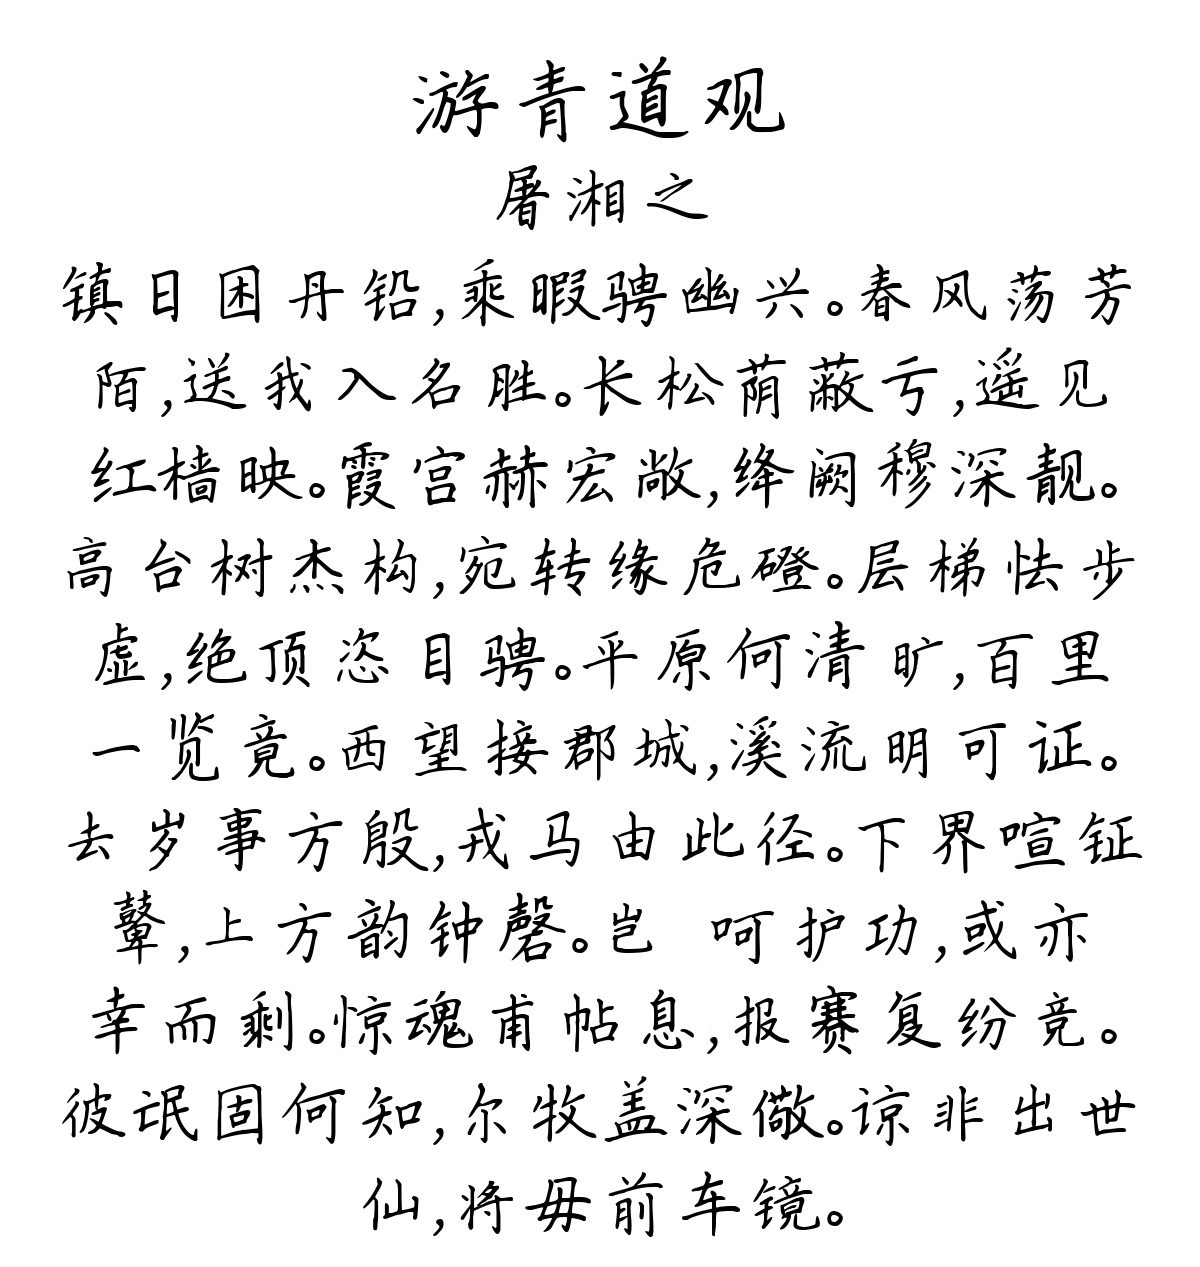 游青道观
屠湘之
镇日困丹铅,乘暇骋幽兴。春风荡芳
陌,送我入名胜。长松荫蔽亏,遥见
红樯映。霞宫赫宏敞,绛阙穆深靓。
高台树杰构,宛转缘危磴。层梯怯步
虚,绝顶恣目骋。平原何清旷,百里
一览竟。西望接郡城,溪流明可证。
去岁事方殷,戎马由此径。下界喧钲
鼙,上方韵钟磬。岂 呵护功,或亦
幸而剩。惊魂甫帖息,报赛复纷竞。
彼氓固何知,尔牧盖深儆。谅非出世
仙,将毋前车镜。